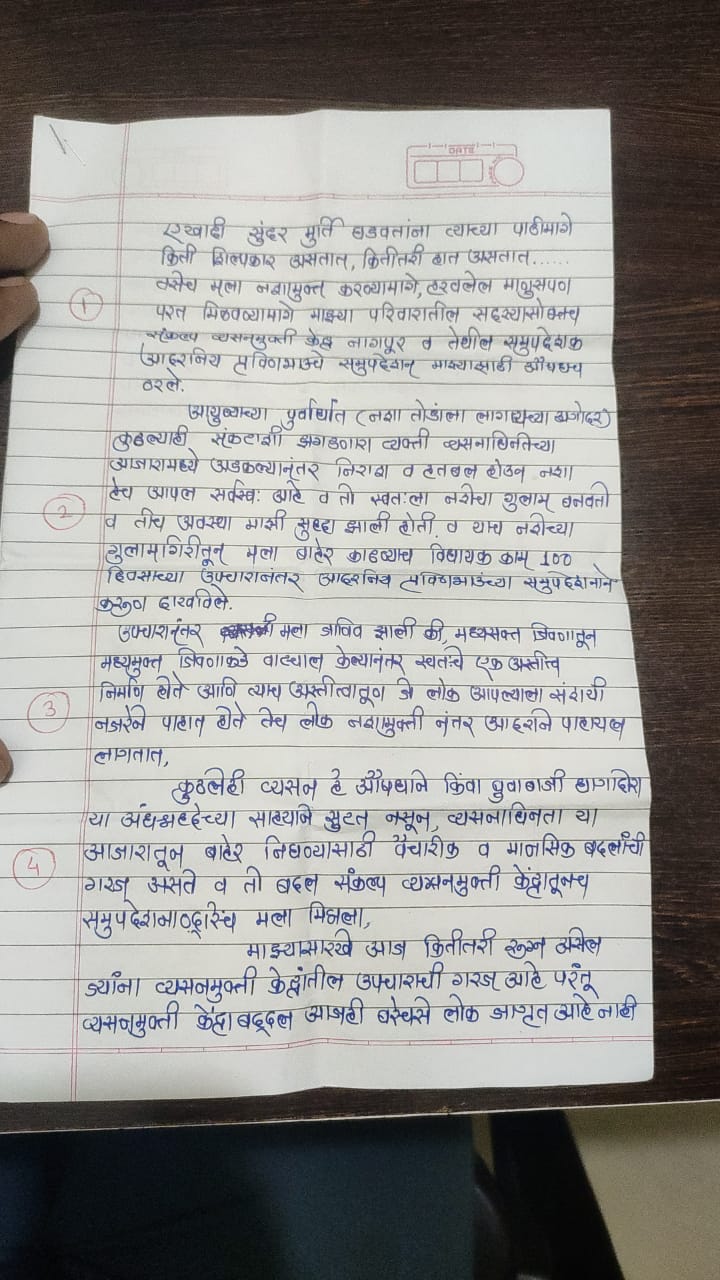 DATE
एखादी सुंदर मुर्ति घडवतांना त्याच्या पाठीमागे
किती शिल्पकार असतात, कितीतरी हात असतात......
तसेच मला नशामुक्त करण्यामागे, हरवलेल माणुसपण
1 परत मिळवण्यामागे माझ्या परिवारातील सदस्यासोबतच
संकल्प व्यसनमुक्ती केंद्र नागपूर व तेथील समुपदेशक
आदरनिय प्रविणभाऊचे समुपदेशन माझ्यासाठी औषधच
ठरले.
आयुष्याच्या पुर्वार्धात (नशा तोंडाला लागायच्या अगोदर)
कुठल्याही संकटाशी झगडणारा व्यक्ती व्यसनाधिनतेच्या
आजारामध्ये अडकल्यानंतर निराश व हतबल होउन नशा
हेच आपल सर्वस्वः आहे व तो स्वतःला नशेचा गुलाम बनवतो
2 व तीच अवस्था माझी सुद्धा झाली होती. व याच नशेच्या
गुलामगिरीतून मला बाहेर काढण्याच विधायक काम 100
दिवसाच्या उपचारानंतर आदरनिय प्रविणभाऊंच्या समुपदेशनाने
करून दाखविले.
उपचारानंतर मला जाणिव झाली की, मद्यासक्त जिवनातून
मद्यमुक्त जिवनाकडे वाटचाल केल्यानंतर स्वतःचे एक अस्तीत्व
3 निर्माण होते आणि त्याच अस्तीत्वातूण जे लोक आपल्याला संशयी
नजरेने पाहात होते तेच लोक नशामुक्ती नंतर आदराने पाहायला
लागतात,
कुठलेही व्यसन हे औषधाने किंवा बुवाबाजी धागादोरा
या अंधश्रद्धेच्या साहयाने सुटत नसून, व्यसनाधिनता या
4 आजारातून बाहेर निघण्यासाठी वैचारीक व मानसिक बदलाची
गरज असते व तो बदल संकल्प व्यसनमुक्ती केंद्रातूनच
समुपदेशनाव्दारेच मला मिळाला,
माझ्यासारखे आज कितीतरी रुग्न असेल
ज्यांना व्यसनमुक्ती केंद्रांतील उपचाराची गरज आहे परंतू
व्यसनमुक्ती केंद्रा बद्दल आजही बरेचसे लोक जागृत आहे नाही